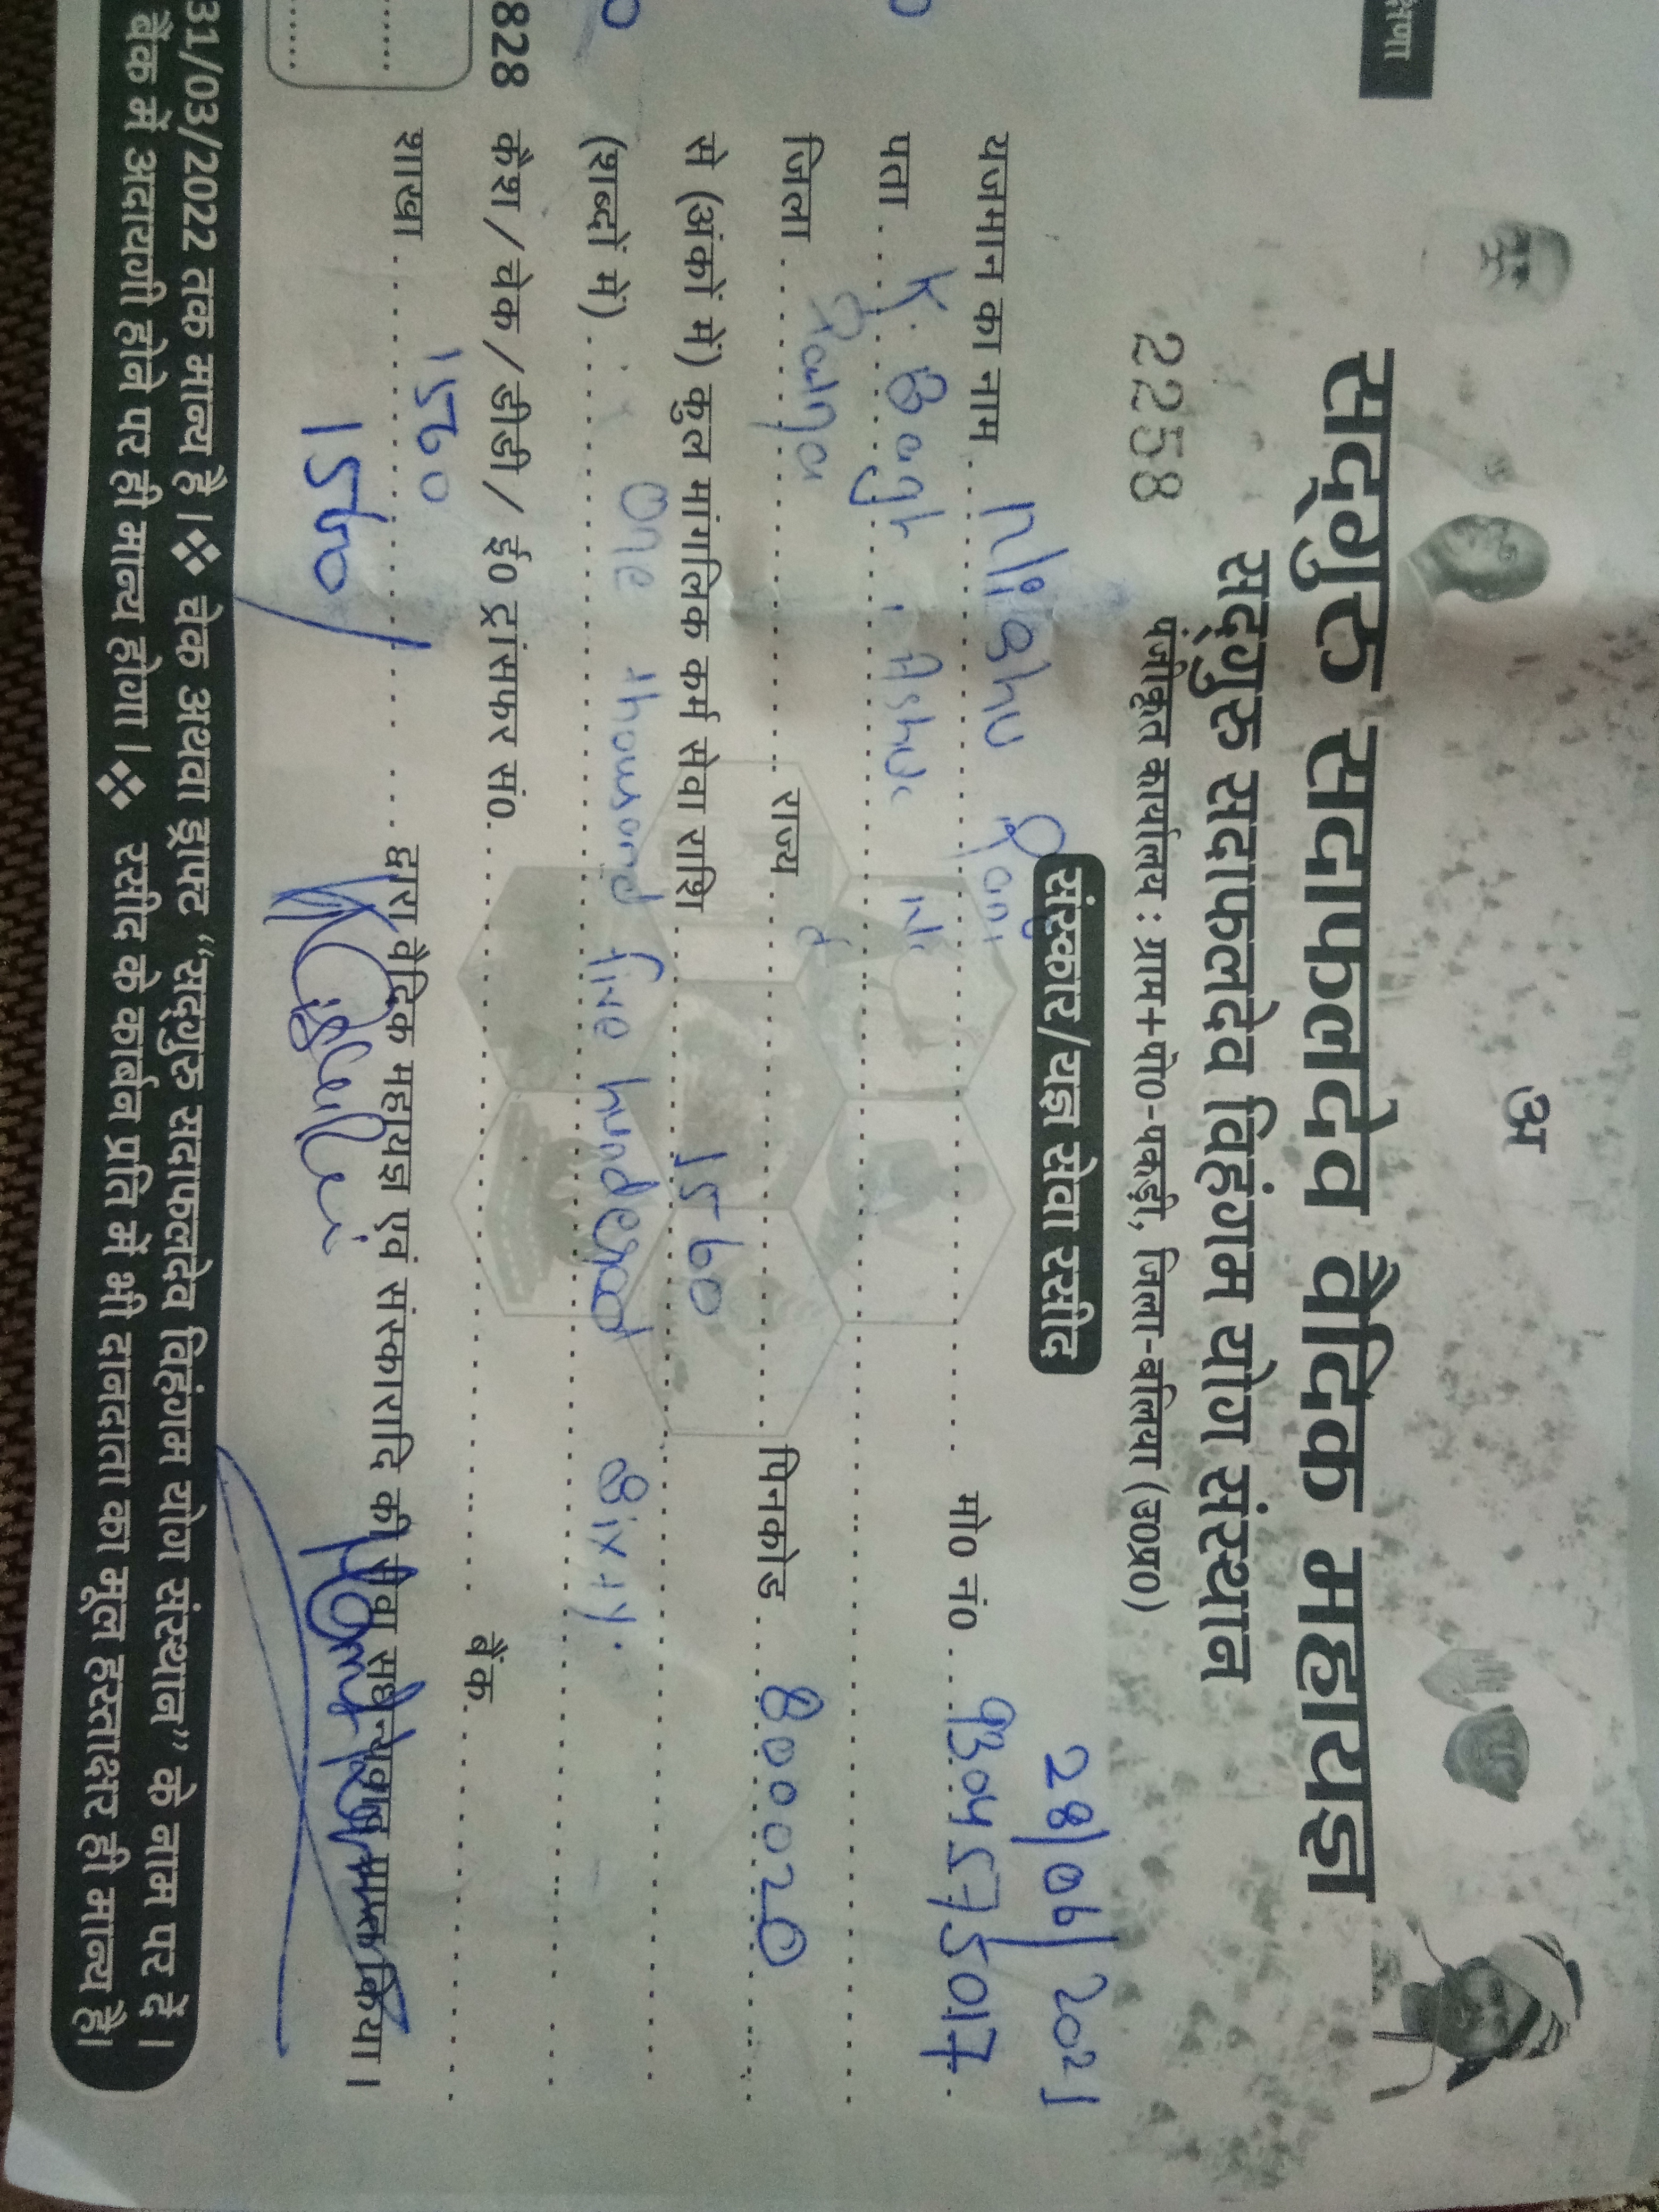 क्षिणा
अ
सद्गुरु सदाफलदेव वैदिक महायज्ञ
सद्गुरु सदाफलदेव विहंगम योग संस्थान
पंजीकृत कार्यालय : ग्राम+पो०-पकड़ी, जिला-बलिया (उ०प्र०)
2258
संस्कार/यज्ञ सेवा रसीद
28/06/2021
यजमान का नाम मो० नं० 9304575017
पता K. Bagh
जिला Patna राज्य पिनकोड 800020
से (अंकों में) कुल मांगलिक कर्म सेवा राशि 1560
(शब्दों में) One thousand five hundered Sixty.
828 कैश / चेक / डीडी / ई० ट्रांसफर सं० बैंक
शाखा 1560 द्वारा वैदिक महायज्ञ एवं संस्कारादि की सेवा राशि
1560/
31/03/2022 तक मान्य है।❖ चेक अथवा ड्राफ्ट “सद्गुरु सदाफलदेव विहंगम योग संस्थान” के नाम पर दें।
बैंक में अदायगी होने पर ही मान्य होगा।❖ रसीद के कार्बन प्रति में भी दानदाता का मूल हस्ताक्षर ही मान्य है।